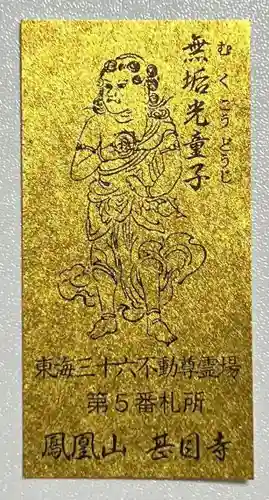 無垢光童子
むくこうどうじ
東海三十六不動尊霊場
第５番札所
鳳凰山 甚目寺